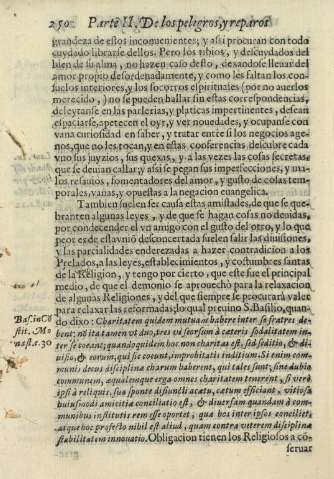 250 Parte II. De los peligros, y reparos
grandeza de estos inconuenientes; y assi procuran con todo
cuydado librarse dellos. Pero los tibios, y descuydados del
bien de su alma, no hazen caso desto, dexandose lleuar del
amor propio desordenadamente, y como les faltan los con-
suelos interiores, y los socorros espirituales (por no auerlos
merecido) no se pueden hallar sin estas correspondencias,
deleytanse en las parlerias, y platicas impertinentes, desean
espaciarse, apetecen el oyr, y ver nouedades, y ocupanse con
vana curiosidad en saber, y tratar entre si los negocios age-
nos, que no les tocan, y en estas conferencias descubre cada
vno sus juyzios, sus quexas, y a las vezes las cosas secretas
que se deuian callar; y assi se pegan sus imperfecciones, y ma-
los resabios, fomentadores del amor, y gusto de cosas tem-
porales, vanas, y opuestas a la negacion euangelica.
Tambien suelen ser causa estas amistades, de que se que-
branten algunas leyes, y de que se hagan cosas no deuidas,
por condecender el vn amigo con el gusto del otro, y lo que
peor es de esta vnió desconcertada suelen salir las diuisiones,
y las parcialidades enderezadas a hazer contradicion a los
Prelados, a las leyes, establecimientos, y costumbres santas
de la Religion, y tengo por cierto, que este fue el principal
medio, de que el demonio se aprouechò para la relaxacion
de algunas Religiones, y del que siempre se procurarà valer
para relaxar las reformadas; lo qual preuino S. Basilio, quan-
Bas. in Cō do dixo: Charitatem quidem mutuam habere inter se fratres de-
stit. Mo bent; nō ita tamen vt duo, tres vè seorsùm à ceteris sodalitatem in-
nast. c. 30 ter se coeant; quandoquidem hoc non charitas est, sed seditio, & di-
uisio, & eorum, qui sic coeunt, improbitatis inditium. Si enim com-
muni decus disciplina charum haberent, qui tales sunt; sine dubio
communem, aqualemque erga omnes charitatem tenerent, si verò
ipsi à reliquis, sua sponte disiuncti acatu, catum efficiunt, vitiosa
huiusmodi amicitia conciliatio est, & diuersum quandam à com-
munibus institutis rem esse oportet, qua hos inter ipsos conciliet,
atque hoc profecto nihil est aliud, quam contra veterem disciplina
stabilitatem innouatio. Obligacion tienen los Religiosos a cō-
seruar